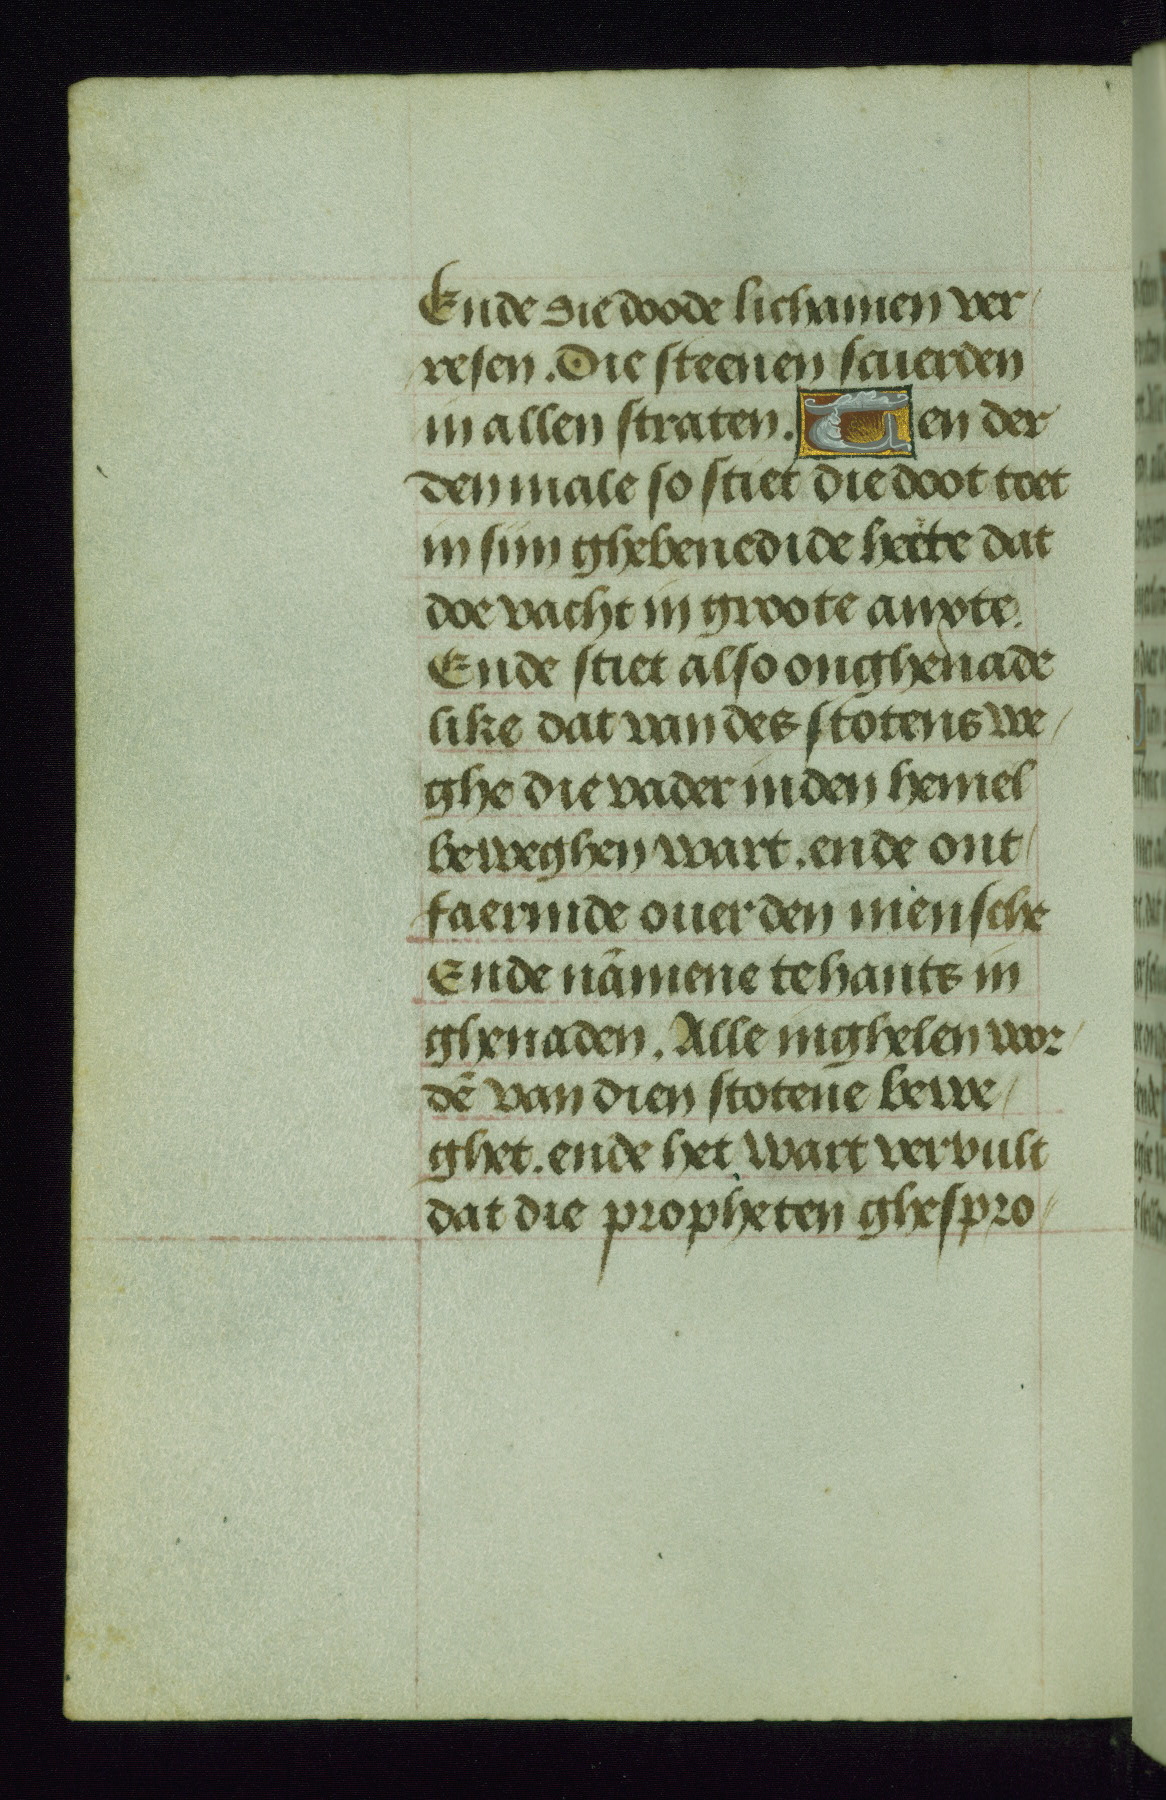 Ende die doode lichamen ver/
resen. Die steenen scuerden
in allen straten. Ten der
denmale so stiet die doot toet
in sijn ghebenedide herte dat
doe vacht in groote anxte.
Ende stiet also onghenade
like dat van des stotens we/
ghe die vader inden hemel
beweghen wart. ende ont/
faermde ouer den mensche
Ende nāmene tehants in
ghenaden. Alle inghelen wor/
dē van dien stotene bewe/
ghet. ende het wart vervult
dat die propheten ghespro/